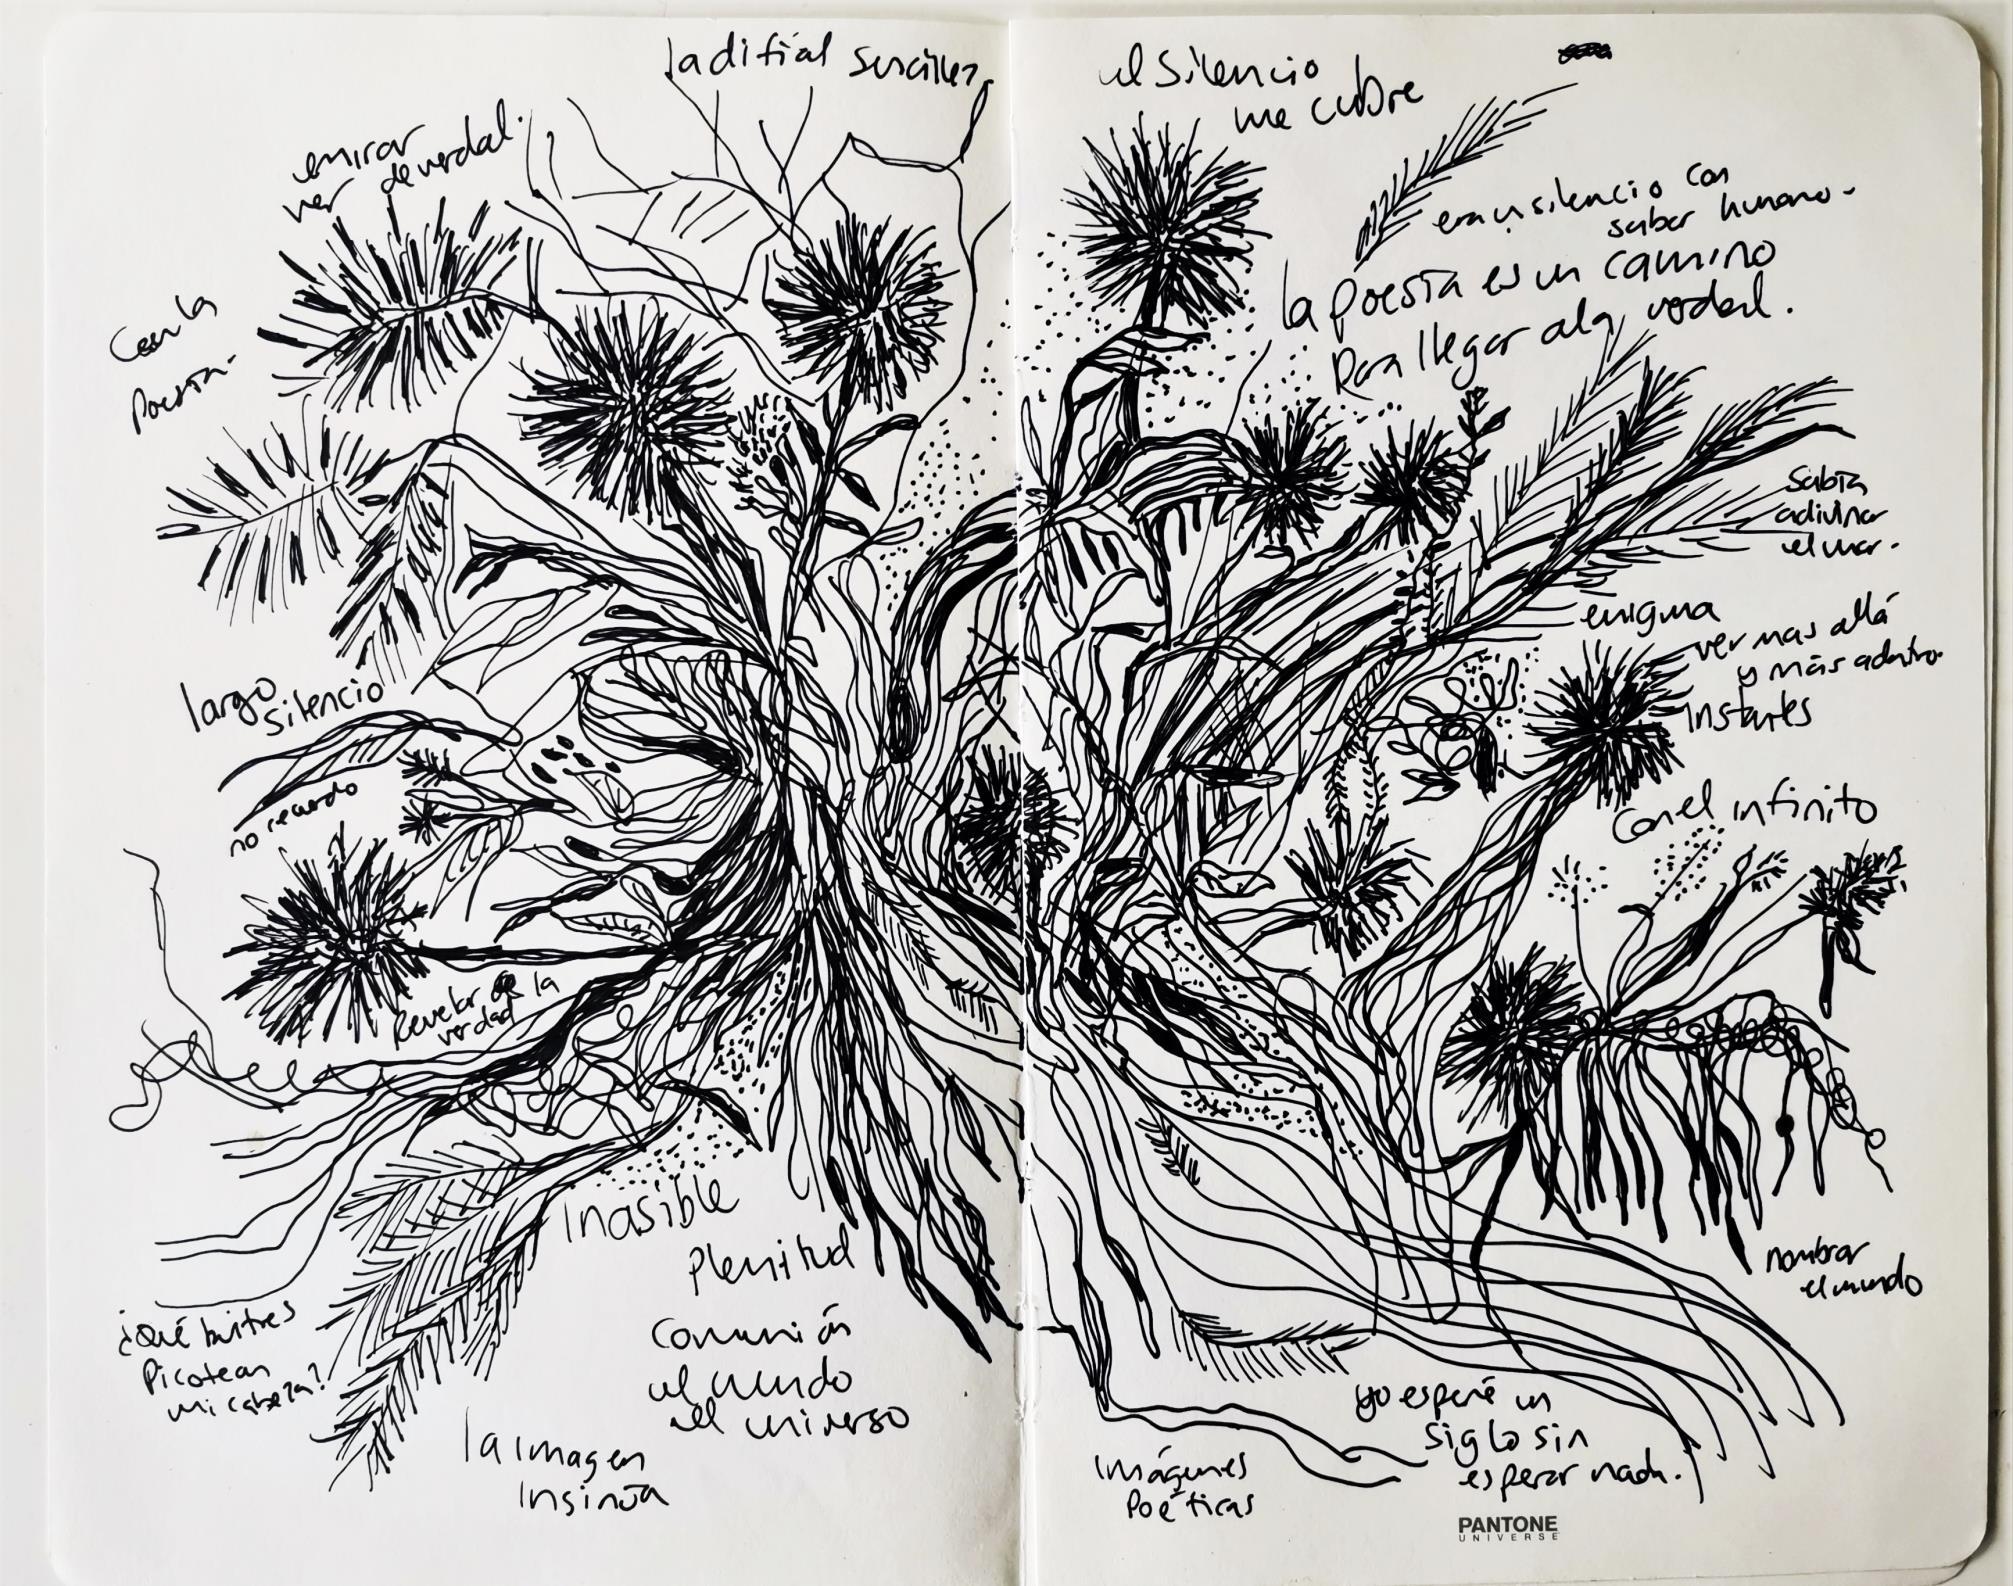 la difícil sencillez
mirar
ver de verdad.
Con la
poesía.
largo
silencio
no recuerdo
Revelar la
verdad
Inasible
Plenitud
Comunión
el mundo
el universo
¿Qué buitres
picotean
mi cabeza?
la imagen
insinúa
el silencio
me cubre
era un silencio con
sabor humano.
la poesía es un camino
para llegar a la verdad.
Sabía
adivinar
el mar.
enigma
ver mas allá
y más adentro.
instantes
Con el infinito
nombrar
el mundo
yo esperé un
siglo sin
esperar nada.
Imágenes
Poéticas
PANTONE
UNIVERSE